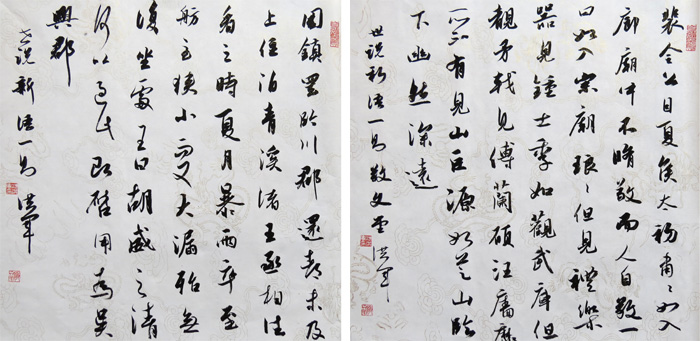 裴令公目夏侯太初肅〻如入
廊廟中不脩敬而人自敬一
曰如入宗廟琅〻但見禮樂
器見鍾士季如觀武庫但
覩矛戟見傅蘭碩汪廧靡
所不有見山巨源如登山臨
下幽然深遠
世说新语一則敬文堂洪軍
周鎮罷臨川郡還都未及
上住泊青溪渚王丞相往
看之時夏月暴雨卒至
舫至狹小而又大漏殆無
復坐處王曰胡威之清
何以過此即啓用為吳
興郡
世说新语一則洪軍